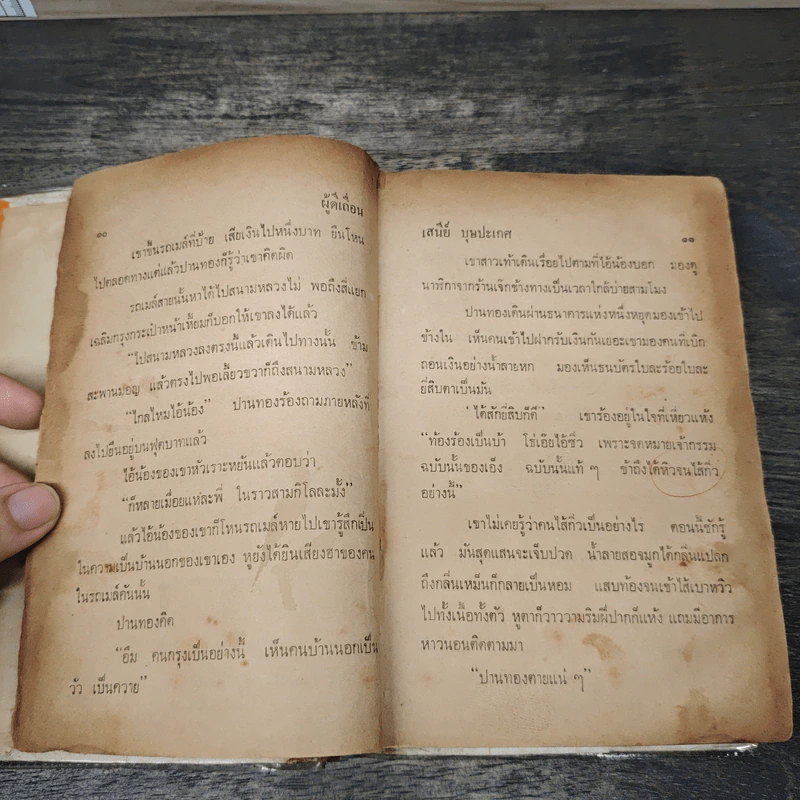 ๑๐
ผู้ดีเถื่อน
เขาขึ้นรถเมล์ที่ป้าย เสียเงินไปหนึ่งบาท ยืนโหน
ไปตลอดทางแต่แล้วปานทองก็รู้ว่าเขาคิดผิด
รถเมล์สายนั้นหาได้ไปสนามหลวงไม่ พอถึงสี่แยก
เฉลิมกรุงกระเป๋าหน้าเหี้ยมก็บอกให้เขาลงได้แล้ว
“ไปสนามหลวงลงตรงนี้แล้วเดินไปทางนั้น ข้าม
สะพานมอญ แล้วตรงไปพอเลี้ยวขวาก็ถึงสนามหลวง”
“ไกลไหมไอ้น้อง” ปานทองร้องถามภายหลังที่
ลงไปยืนอยู่บนฟุตบาทแล้ว
ไอ้น้องของเขาหัวเราะหยันแล้วตอบว่า
“ก็หลายเมื่อยแหละพี่ ในราวสามกิโลละมั้ง”
แล้วไอ้น้องของเขาก็โหนรถเมล์หายไปเขารู้สึกเป็น
ในความเป็นบ้านนอกของเขาเอง หูยังได้ยินเสียงฮาของคน
ในรถเมล์คันนั้น
ปานทองคิด
“อืม คนกรุงเป็นอย่างนี้ เห็นคนบ้านนอกเป็น
วัว เป็นควาย”
เสนีย์ บุษปะเกศ
๑๑
เขาสาวเท้าเดินเรื่อยไปตามที่ไอ้น้องบอก มองดู
นาฬิกาจากร้านเจ๊กข้างทางเป็นเวลาใกล้บ่ายสามโมง
ปานทองเดินผ่านธนาคารแห่งหนึ่งหยุดมองเข้าไป
ข้างใน เห็นคนเข้าไปฝากรับเงินกันเยอะเขามองคนที่เบิก
ถอนเงินอย่างน้ำลายหก มองเห็นธนบัตรใบละร้อยใบละ
ยี่สิบตาเป็นมัน
“ได้สักยี่สิบก็ดี” เขาร้องอยู่ในใจที่เหี่ยวแห้ง
“ท้องร้องเป็นบ้า โธ่เอ๊ยไอ้ซิ่ว เพราะจดหมายเจ้ากรรม
ฉบับนั้นของเอ็ง ฉบับนั้นแท้ ๆ ข้าถึงได้หิวจนไส้กิ่ว
อย่างนี้”
เขาไม่เคยรู้ว่าคนไส้กิ่วเป็นอย่างไร ตอนนี้ชักรู้
แล้ว มันสุดแสนจะเจ็บปวด น้ำลายสอจมูกได้กลิ่นแปลก
ถึงกลิ่นเหม็นก็กลายเป็นหอม แสบท้องจนเข้าไส้เบาหวิว
ไปทั้งเนื้อทั้งตัว หูตาก็วาววามริมฝีปากก็แห้ง แถมมีอาการ
หาวนอนติดตามมา
“ปานทองตายแน่ ๆ”